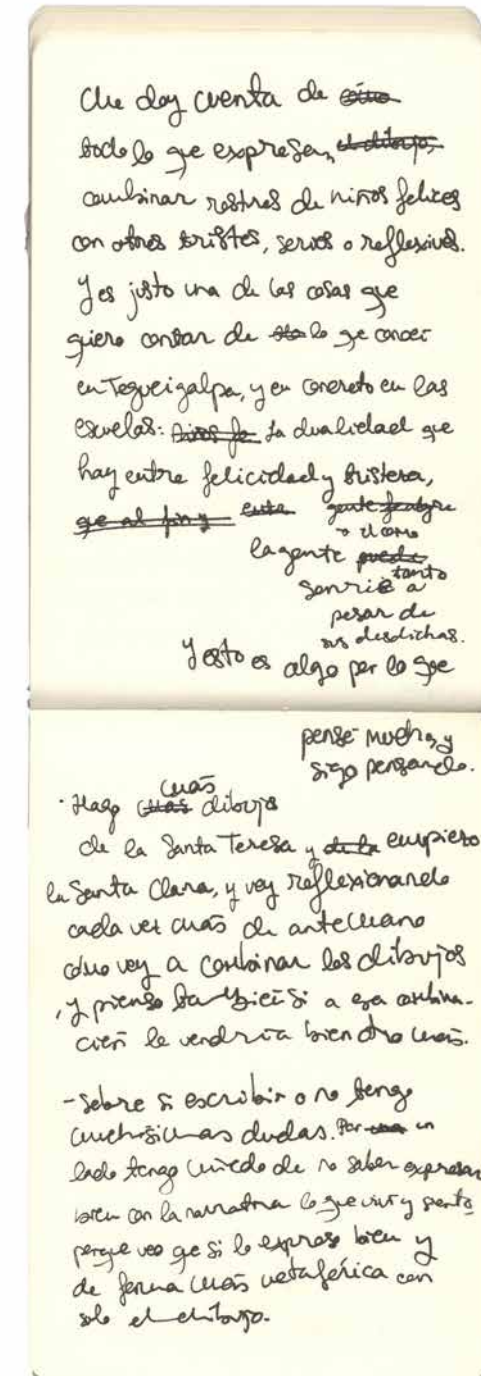 Me doy cuenta de cómo
todo lo que expresan, el dibujo,
combinar rostros de niños felices
con otros tristes, serios o reflexivos.
Y es justo una de las cosas que
quiero contar de lo que conocí
en Tegucigalpa, y en concreto en las
escuelas: La dualidad que
hay entre felicidad y tristeza,
que al fin y entre gente
o cómo
la gente puede
sonríe tanto a
pesar de
sus desdichas.
Y esto es algo por lo que
pensé mucho, y
sigo pensando.
· Hago más dibujos
de la Santa Teresa y de la empiezo
la Santa Clara, y voy reflexionando
cada vez más de antemano
cómo voy a combinar los dibujos
, y pienso también si a esa combina-
ción le vendría bien otro más.
- Sobre si escribir o no tengo
muchísimas dudas. Por un
lado tengo miedo de no saber expresar
bien con la narrativa lo que viví y siento
porque veo que si lo expreso bien y
de forma más metafórica con
solo el dibujo.